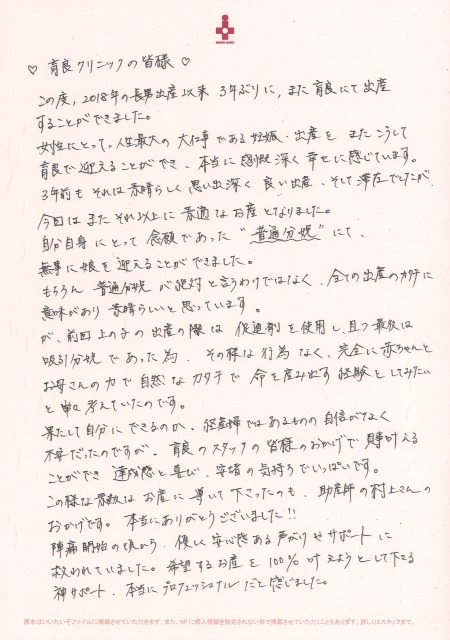 ♡ 育良クリニックの皆様 ♡
この度, 2018年の長男出産以来 3年ぶりに, また育良にて出産
することができました。
女性にとって, 人生最大の大仕事である妊娠・出産を またこうして
育良で迎えることができ、本当に感慨深く幸せに感じています。
3年前も それは素晴らしく 思い出深く 良い出産、そして滞在でしたが
今回は またそれ以上に 素適な お産となりました。
自分自身にとって 念願であった "普通分娩" にて、
無事に娘を 迎えることができました。
もちろん 普通分娩が絶対と言うわけではなく、全ての出産のカタチに
意味があり 素晴らしいと思っています。
が、前回上の子の出産の際は 促進剤を使用し、且つ最後は
吸引分娩であった為、その様な行為なく、完全に赤ちゃんと
お母さんの力で 自然なカタチで 命を産み出す経験をしてみたい
と 考えていたのです。
果たして自分にできるのか、経産婦ではあるものの自信がなく
不安だったのですが、育良のスタッフの皆様のおかげで 見事叶える
ことができ 達成感と喜び、安堵の気持ちでいっぱいです。
この様な素敵なお産に導いて下さったのも、助産師の村上さんの
おかげです。本当にありがとうございました!!
陣痛開始の頃から、優しく安心感ある声がけやサポートに
救われていました。希望するお産を100%叶えようとして下さる
神サポート、本当にプロフェッショナルだと感じました。
原本はいいたいぞファイルに掲載させていただきます。また、HPに個人情報を特定されない形で掲載させていただくこともあります。詳しくはスタッフまで。